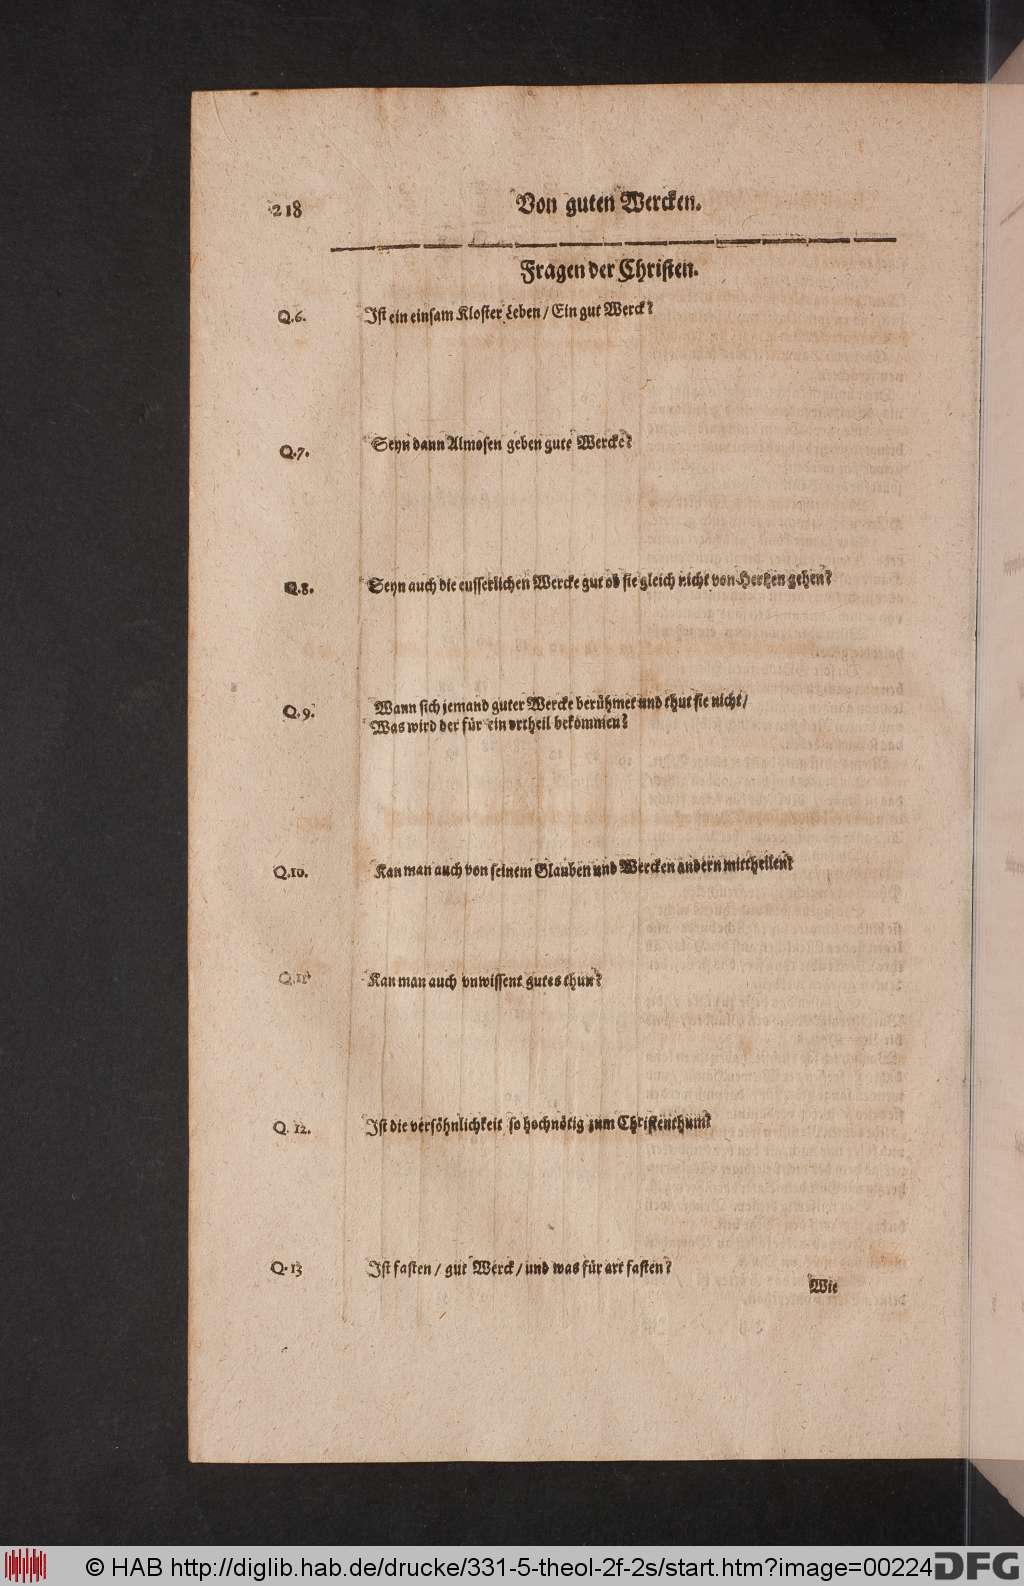 218
Von guten Wercken.
Fragen der Christen.
Q.6. Ist ein einsam Kloster Leben / Ein gut Werck?
Q.7. Seyn dann Almosen geben gute Wercke?
Q.8. Seyn auch die eusserlichen Wercke gut ob sie gleich nicht von Hertzen gehen?
Q.9. Wann sich jemand guter Wercke berühmet und thut sie nicht /
Was wird der für ein vrtheil bekommen?
Q.10. Kan man auch von seinem Glauben und Wercken andern mittheilen?
Q.11 Kan man auch vnwissent gutes thun?
Q. 12. Ist die versöhnlichkeit so hochnötig zum Christenthum?
Q.13 Ist fasten / gut Werck / und was für art fasten?
Wie
© HAB http://diglib.hab.de/drucke/331-5-theol-2f-2s/start.htm?image=00224
DFG